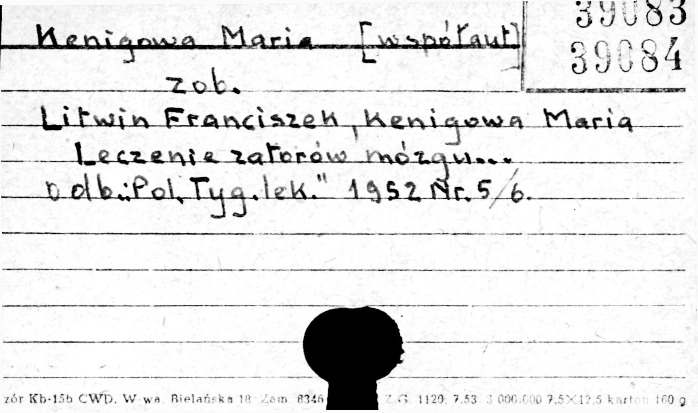 39083
Kenigowa Maria [współaut]
39084
zob.
Litwin Franciszek, Kenigowa Maria
Leczenie zatorów mózgu...
odb. "Pol. Tyg. lek." 1952 Nr. 5/6.
zór Kb-15b CWD. W-wa, Bielańska 18 Zam. 8346 Z.G. 1129. 7.53. 3 000.000 7,5×12,5 karton 160 g